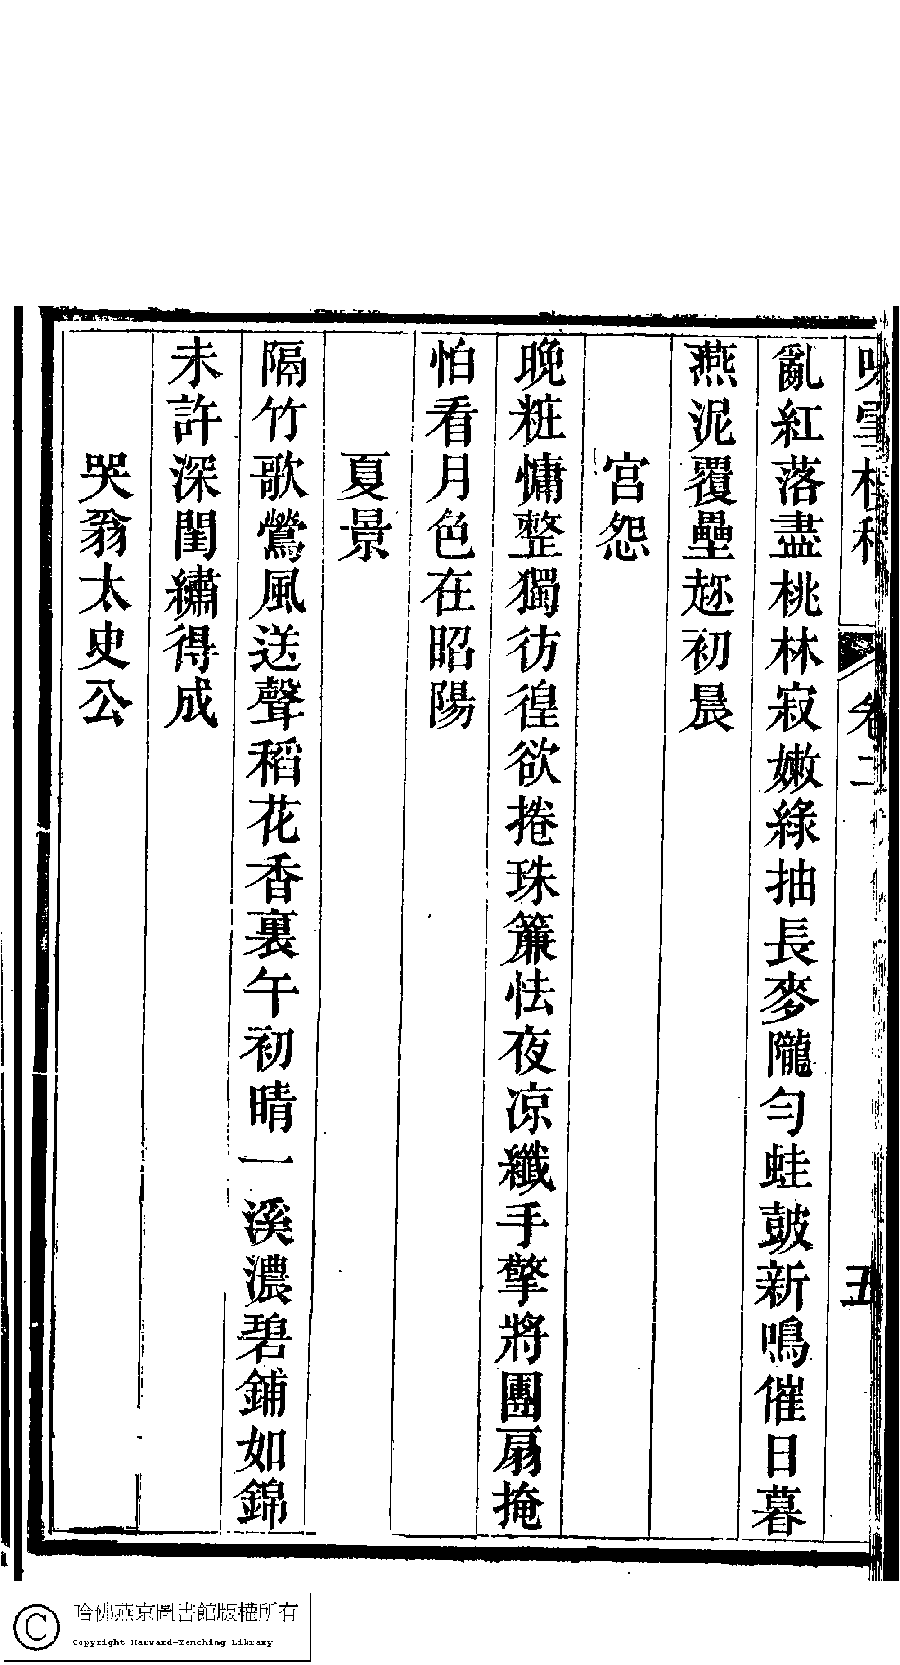 卷二 五
亂紅落盡桃林寂嫩綠抽長麥隴勻蛙皷新鳴催日暮
燕泥覆壘趂初晨
宮怨
晚粧慵整獨彷徨欲捲珠簾怯夜凉纖手擎將團扇掩
怕看月色在昭陽
夏景
隔竹歌鶯風送聲稻花香裏午初晴一溪濃碧鋪如錦
未許深閨繡得成
哭翁太史公
哈佛燕京圖書館版權所有
Copyright Harvard-Yenching Library